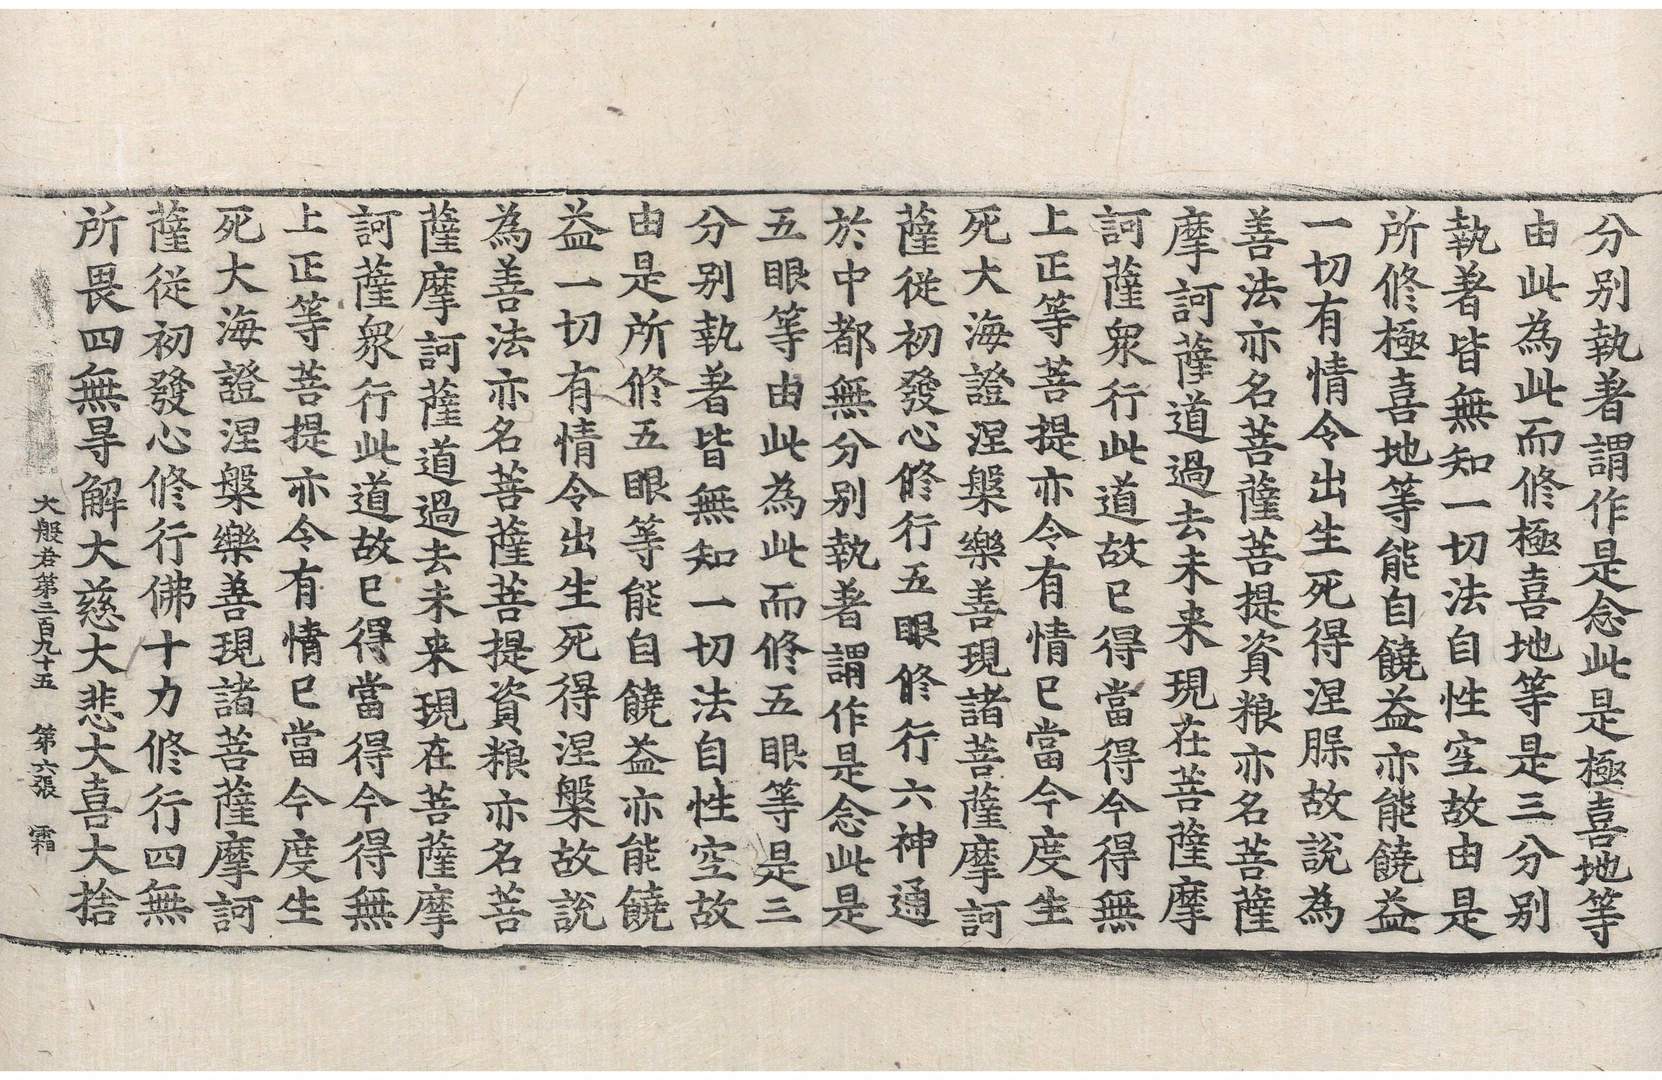 分别執著謂作是念此是極喜地等
由此為此而修極喜地等是三分别
執著皆無知一切法自性空故由是
所修極喜地等能自饒益亦能饒益
一切有情令出生死得涅脲故說為
善法亦名菩薩菩提資粮亦名菩薩
摩訶薩道過去未来現在菩薩摩
訶薩衆行此道故已得當得今得無
上正等菩提亦令有情已當今度生
死大海證涅槃樂善現諸菩薩摩訶
薩從初發心修行五眼修行六神通
於中都無分别執著謂作是念此是
五眼等由此為此而修五眼等是三
分别執著皆無知一切法自性空故
由是所修五眼等能自饒益亦能饒
益一切有情令出生死得涅槃故說
為善法亦名菩薩菩提資粮亦名菩
薩摩訶薩道過去未来現在菩薩摩
訶薩衆行此道故已得當得今得無
上正等菩提亦令有情已當今度生
死大海證涅槃樂善現諸菩薩摩訶
薩從初發心修行佛十力修行四無
所畏四無㝵解大慈大悲大喜大捨
大般若第三百九十五 第六張 霜